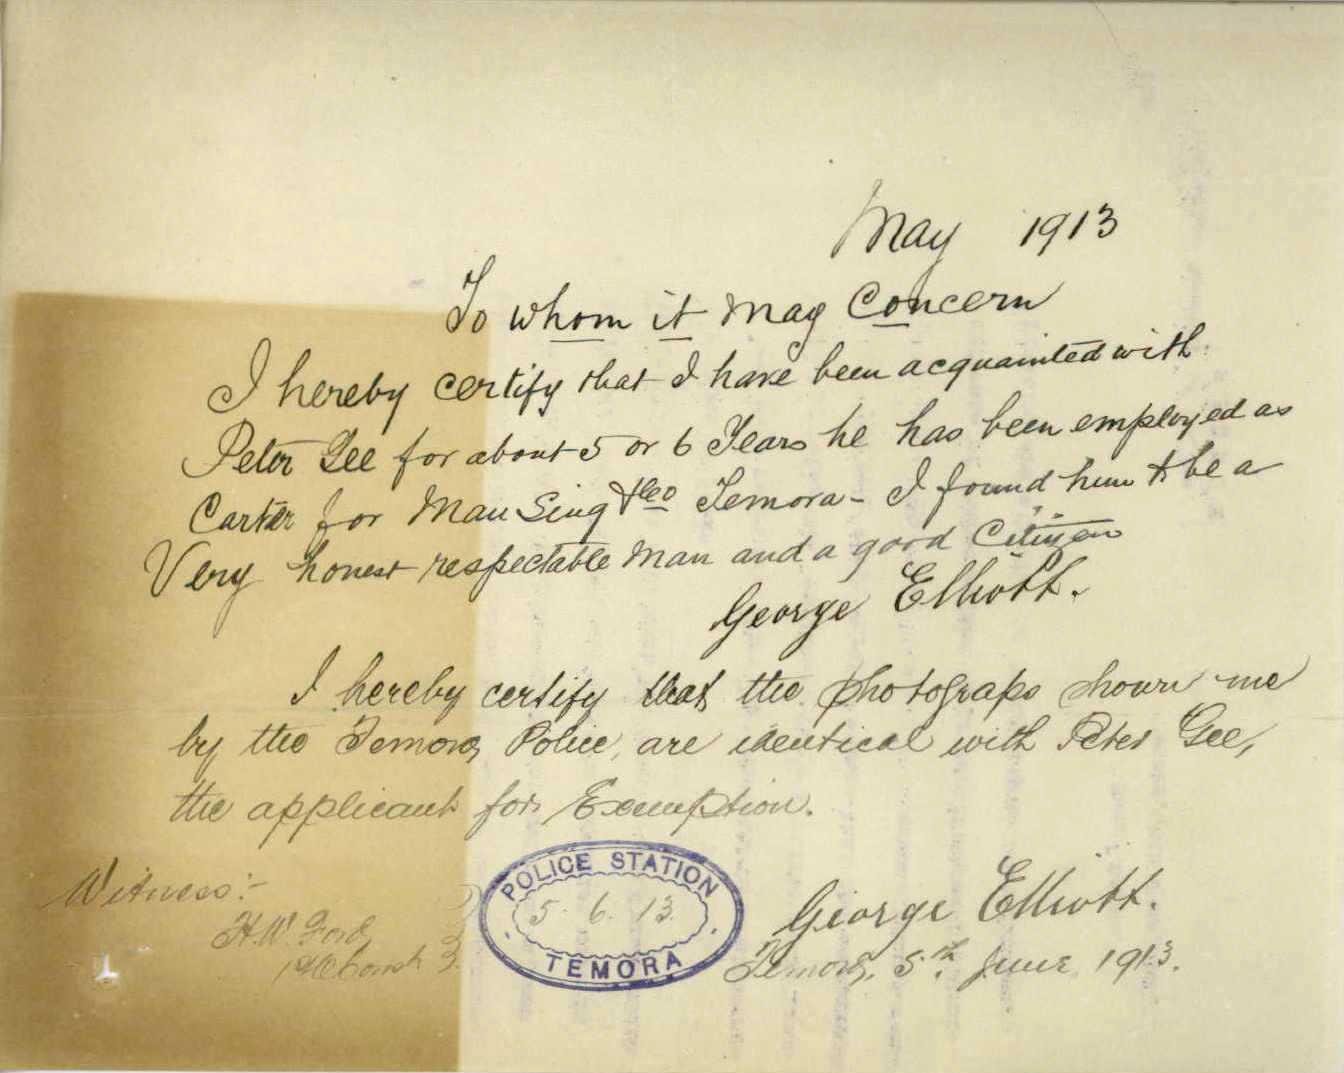 May 1913
To whom it may Concern
I hereby certify that I have been acquainted with
Peter Gee for about 5 or 6 Years he has been employed as
Carter for Mau Sing & Co Temora - I found him to be a
Very honest respectable man and a good Citizen
George Elliott.
I hereby certify that the photograps shown me
by the Temora Police, are identical with Peter Gee,
the applicant for Exemption.
Witness:-
H.W. Ford
George Elliott.
Temora, 5th June 1913.
POLICE STATION
5. 6. 13.
TEMORA